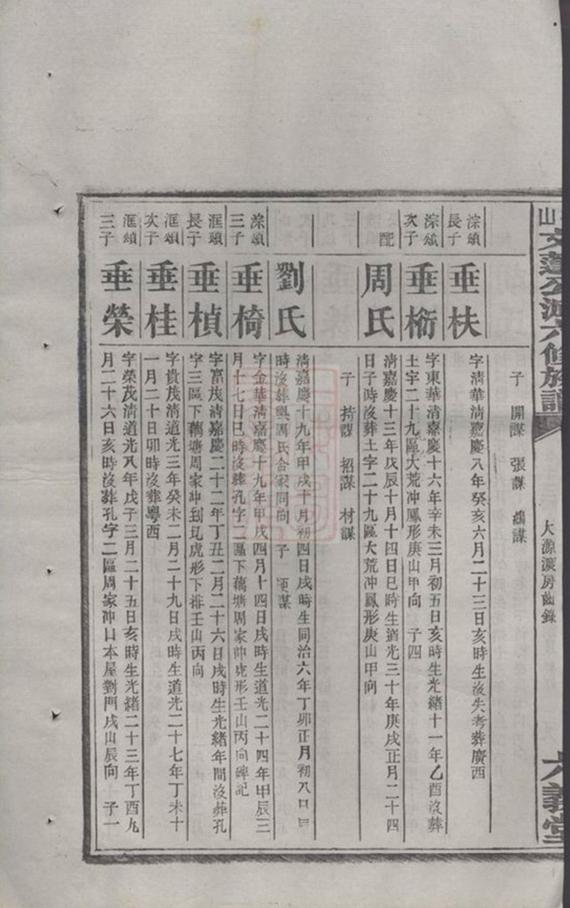 山文蓮公派六修族譜
大源派房齒錄
六義堂
子 開謀 張謀 謀
淙頌長子
垂扶
字清華清嘉慶八年癸亥六月二十三日亥時生沒失考葬廣西
淙頌次子
垂衡
字東華清嘉慶十六年辛未三月初五日亥時生光緒十一年乙酉沒葬
土字二十九區大荒冲鳳形庚山甲向 子四
配
周氏
清嘉慶十三年戊辰十月十四日巳時生道光三十年庚戌正月二十四
日子時沒葬土字二十九區大荒冲鳳形庚山甲向
子 持謀 招謀 材謀
劉氏
清嘉慶十九年甲戌十月初四日戌時生同治六年丁卯正月初八日
時沒葬與周氏合冢同向 子 謀
淙頌三子
垂椅
字金華清嘉慶十九年甲戌四月十四日戌時生道光二十四年甲辰三
月十七日巳時沒葬孔字二區下藕塘周家冲虎形壬山丙向碑記
滙頌長子
垂楨
字富茂清嘉慶二十二年丁丑二月二十六日戌時生光緒年間沒葬孔
字三區下藕塘周家冲虎形下排壬山丙向
滙頌次子
垂桂
字貴茂清道光三年癸未二月二十九日戌時生道光二十七年丁未十
一月二十日卯時沒葬粵西
滙頌三子
垂榮
字榮茂清道光八年戊子三月二十五日亥時生光緒二十三年丁酉九
月二十六日亥時沒葬孔字二區周家冲口本屋對門戌山辰向 子一